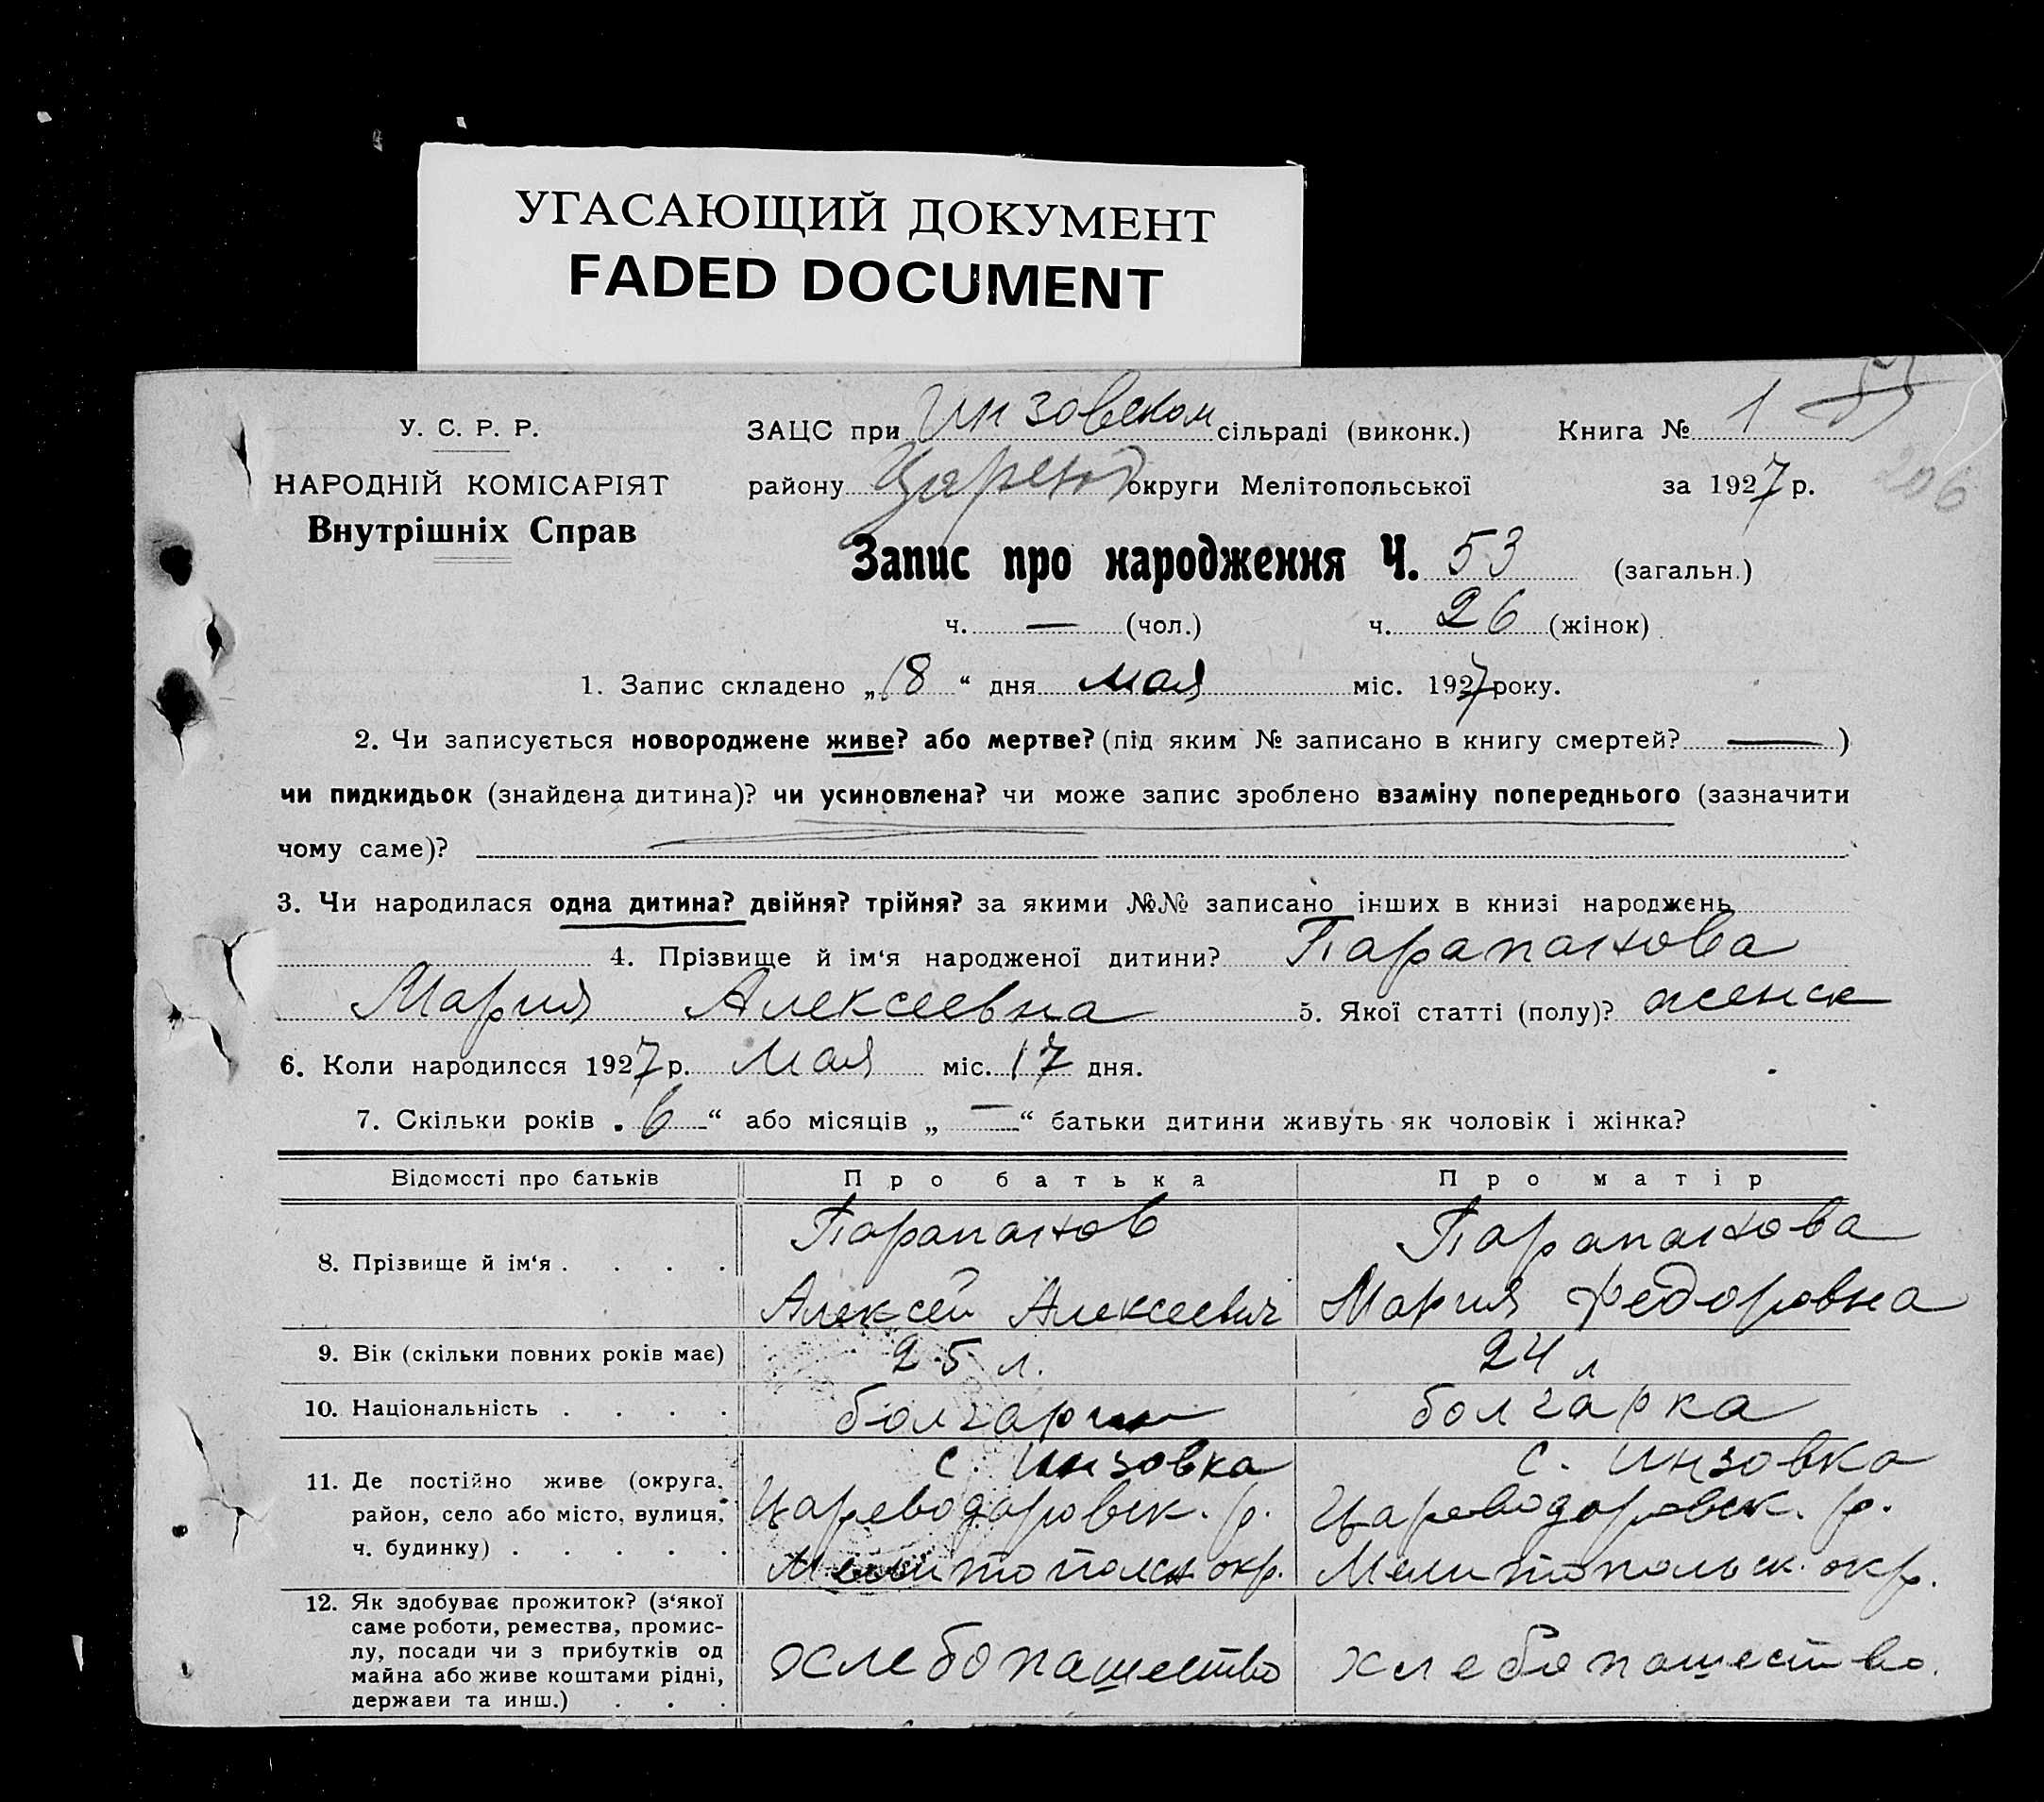 УГАСАЮЩИЙ ДОКУМЕНТ
FADED DOCUMENT
У. С. Р. Р.
НАРОДНІЙ КОМІСАРІЯТ
Внутрішніх Справ
ЗАЦС при Инзовском сільраді (виконк.) Книга № 1
району округи Мелітопольської за 1927 р.
206
Запис про народження Ч. 53 (загальн.)
ч. — (чол.) ч. 26 (жінок)
1. Запис складено „18“ дня мая міс. 1927 року.
2. Чи записується новороджене живе? або мертве? (під яким № записано в книгу смертей? — )
чи пидкидьок (знайдена дитина)? чи усиновлена? чи може запис зроблено взаміну попереднього (зазначити
чому саме)?
3. Чи народилася одна дитина? двійня? трійня? за якими №№ записано інших в книзі народжень
4. Прізвище й ім‘я народженої дитини? Парапанова
Мария Алексеевна 5. Якої статті (полу)? женск
6. Коли народилося 1927 р. мая міс. 17 дня.
7. Скільки років „6“ або місяців „—“ батьки дитини живуть як чоловік і жінка?
Відомості про батьків Про батька Про матір
8. Прізвище й ім‘я . . . . Парапанов Парапанова
Алексей Алексеевич Мария Федоровна
9. Вік (скільки повних років має) 25 л. 24 л
10. Національність . . . . болгарин болгарка
11. Де постійно живе (округа, район, село або місто, вулиця, ч. будинку) . . . . . с. Инзовка с. Инзовка
Цареводаровск. р. Цареводаровск. р.
Мелитопольск окр. Мелитопольск. окр.
12. Як здобуває прожиток? (з‘якої
саме роботи, ремества, промис-
лу, посади чи з прибутків од
майна або живе коштами рідні,
держави та инш.) . . . хлебопашество хлебопашество.